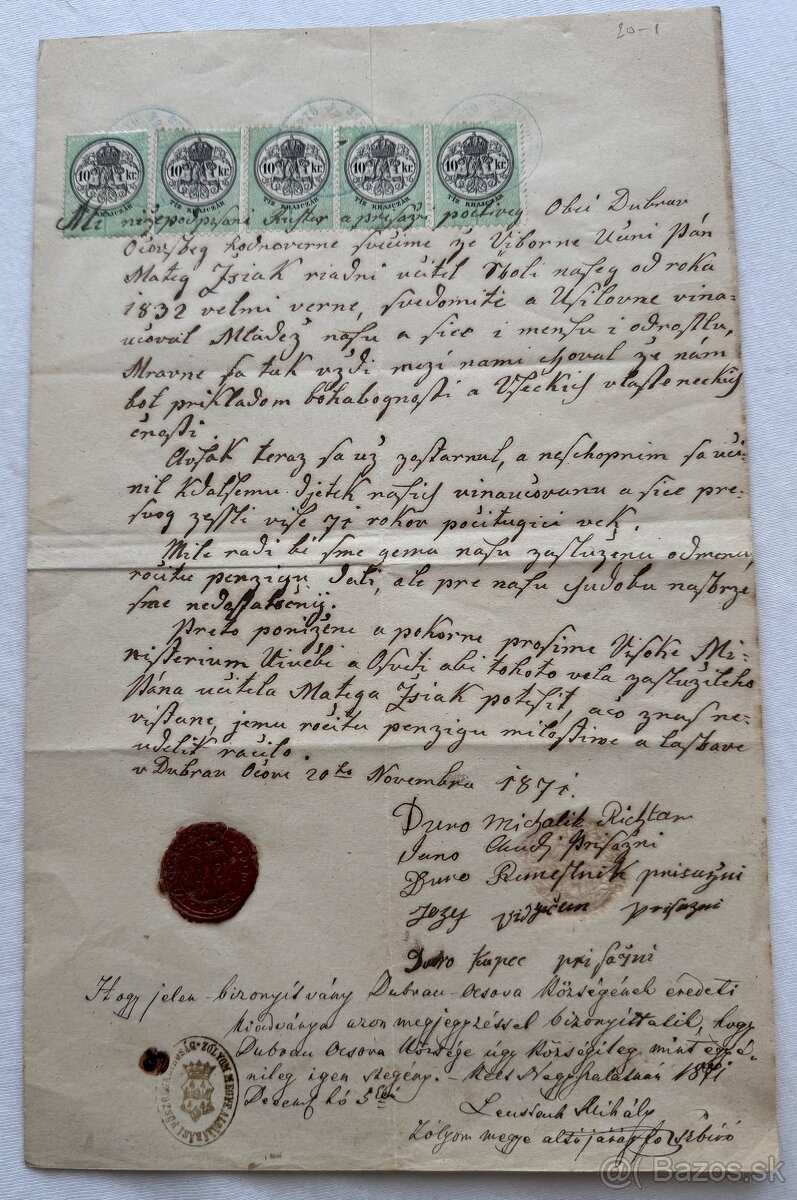 20-1
10 kr. 10 kr. 10 kr. 10 kr. 10 kr.
TIZ KRAJCZÁR TIZ KRAJCZÁR TIZ KRAJCZÁR TIZ KRAJCZÁR TIZ KRAJCZÁR
Mi nižepodpisani a prisažni poctiveg Obci Dubrav
Očovskeg hodnoverne svečime že Viborne Učeni Pán
Mateg Žiak riadni učitel Školi našeg od roka
1832 velmi verne, svedomite a Usilovne vina-
učoval Mládež našu a sice i menšu i odrostlu,
Mravne sa tak vždi mezi nami choval že nám
bol prikladom bohabognosti a Všeckich vlasteneckich
čnosti.
Avšak teraz sa už zostarnul, a neschopnim sa uči-
nil kdalšemu djetek našich vinaučovanu a sice pre-
svog zešli više 71 rokov počitugici vek.
Mile radi bi sme gemu našu zasluženu odmenu,
ročitu penzigu dali, ale pre našu chudobu nato
sme nedostatečnij.
Preto ponižene a pokorne prosime Visoke Mi-
nisterium Učeби a Osveti abi tohoto vela zaslužileho
Pána učitela Matega Žiak potešit, ačo znás ne-
vistane, jemu ročitu penzigu milostiwe a laskave
udelit račilo.
v Dubrav Očovi 20ho Novembra 1871.
Duro Michalik Richtar
Jano prisažni
Duro Remeslnik prisažni
Jozef prisazni
Duro Kupec prisažni
Hogy jelen bizonyitvány Dubrau-Ocsova községének eredeti
kiadványa azon megjegyzéssel bizonyittatik, hogy
Dubrau Ocsova községe úgy községileg mint egyé-
nileg igen szegény. - Kelt 1871
Decemb hó 5én
Mihály
Zólyom megye alsó járási főszbiró
ZÓLYOM MEGYE
Bazos.sk